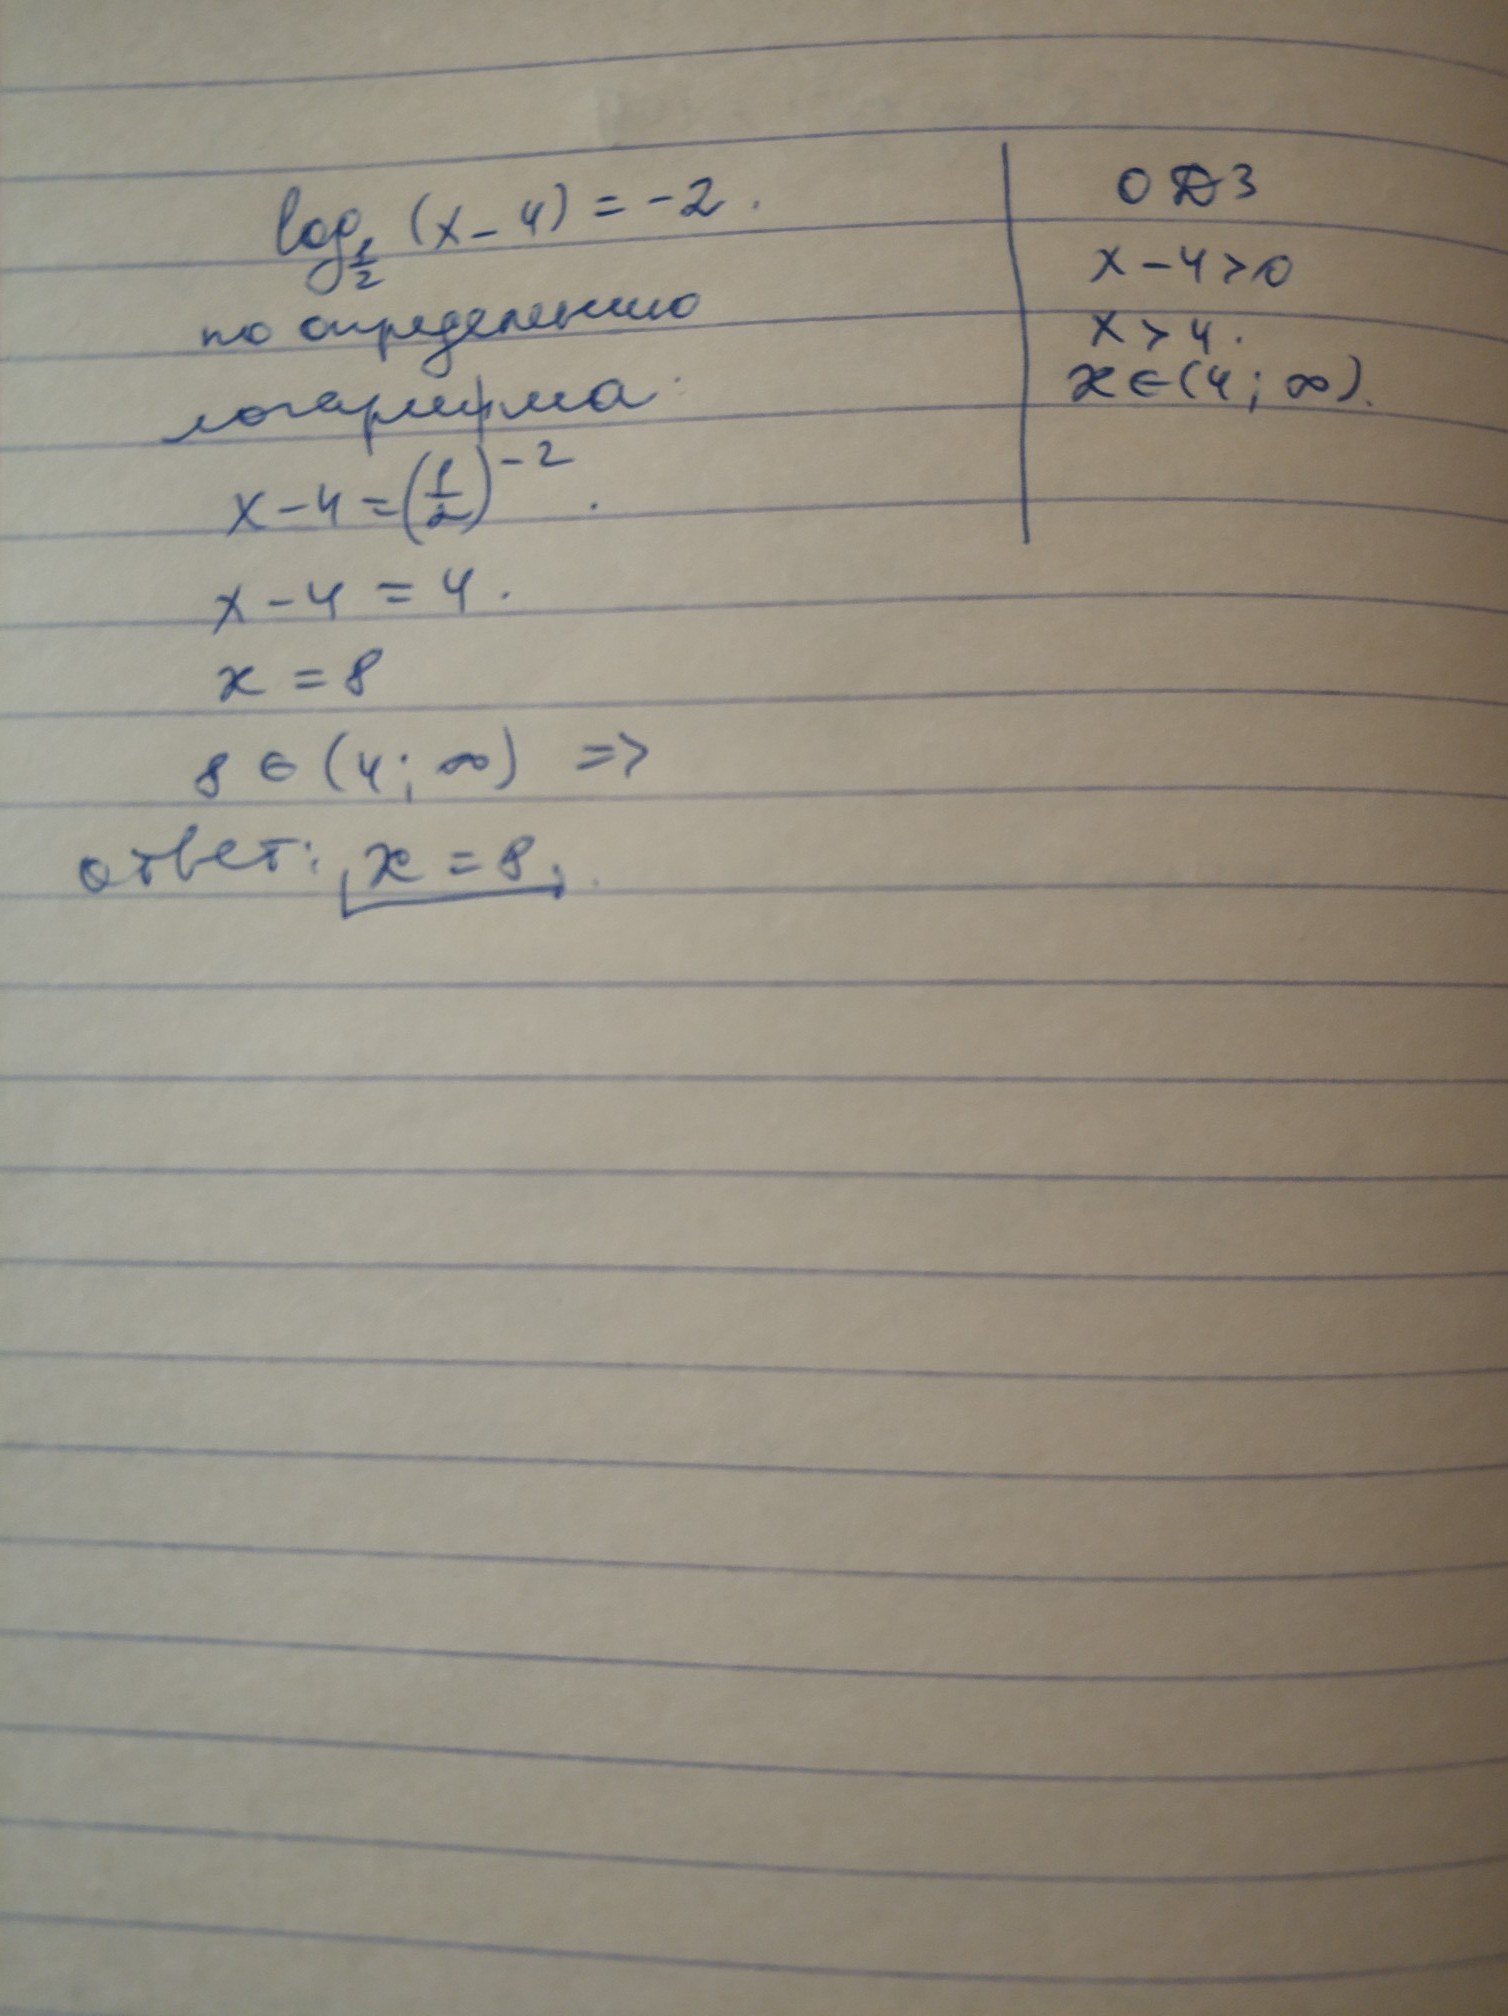 log_{1/2} (x - 4) = -2.
по определению
логарифма:
x - 4 = (1/2)^{-2}.
x - 4 = 4.
x = 8
8 ∈ (4; ∞) =>
ответ: x = 8.
ОДЗ
x - 4 > 0
x > 4.
x ∈ (4; ∞).